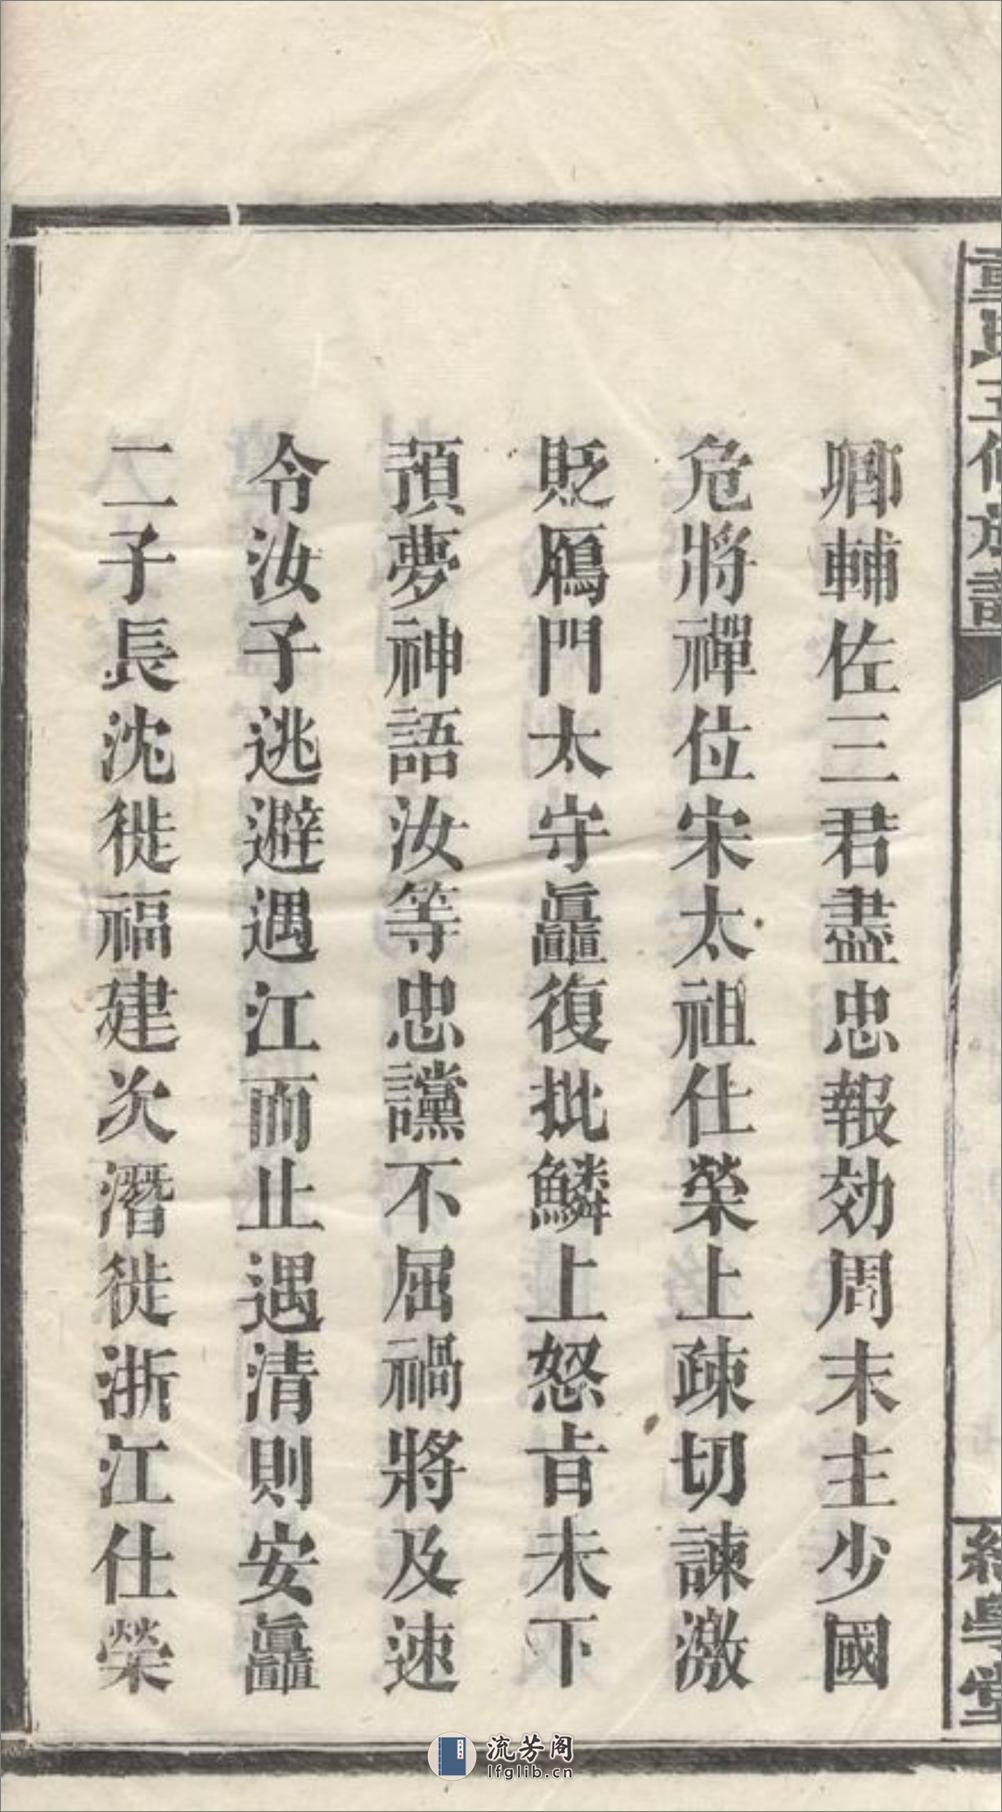 卿輔佐三君盡忠報効周末主少國
危將禪位宋太祖仕榮上疎切諫激
貶鴈門太守矗復批鱗上怒肯未下
預夢神語汝等忠讜不屈禍將及速
令汝子逃避遇江而止遇清則安矗
二子長沈徙福建次潛徙浙江仕榮
五修族譜
堂
流芳阁
lfglib.cn